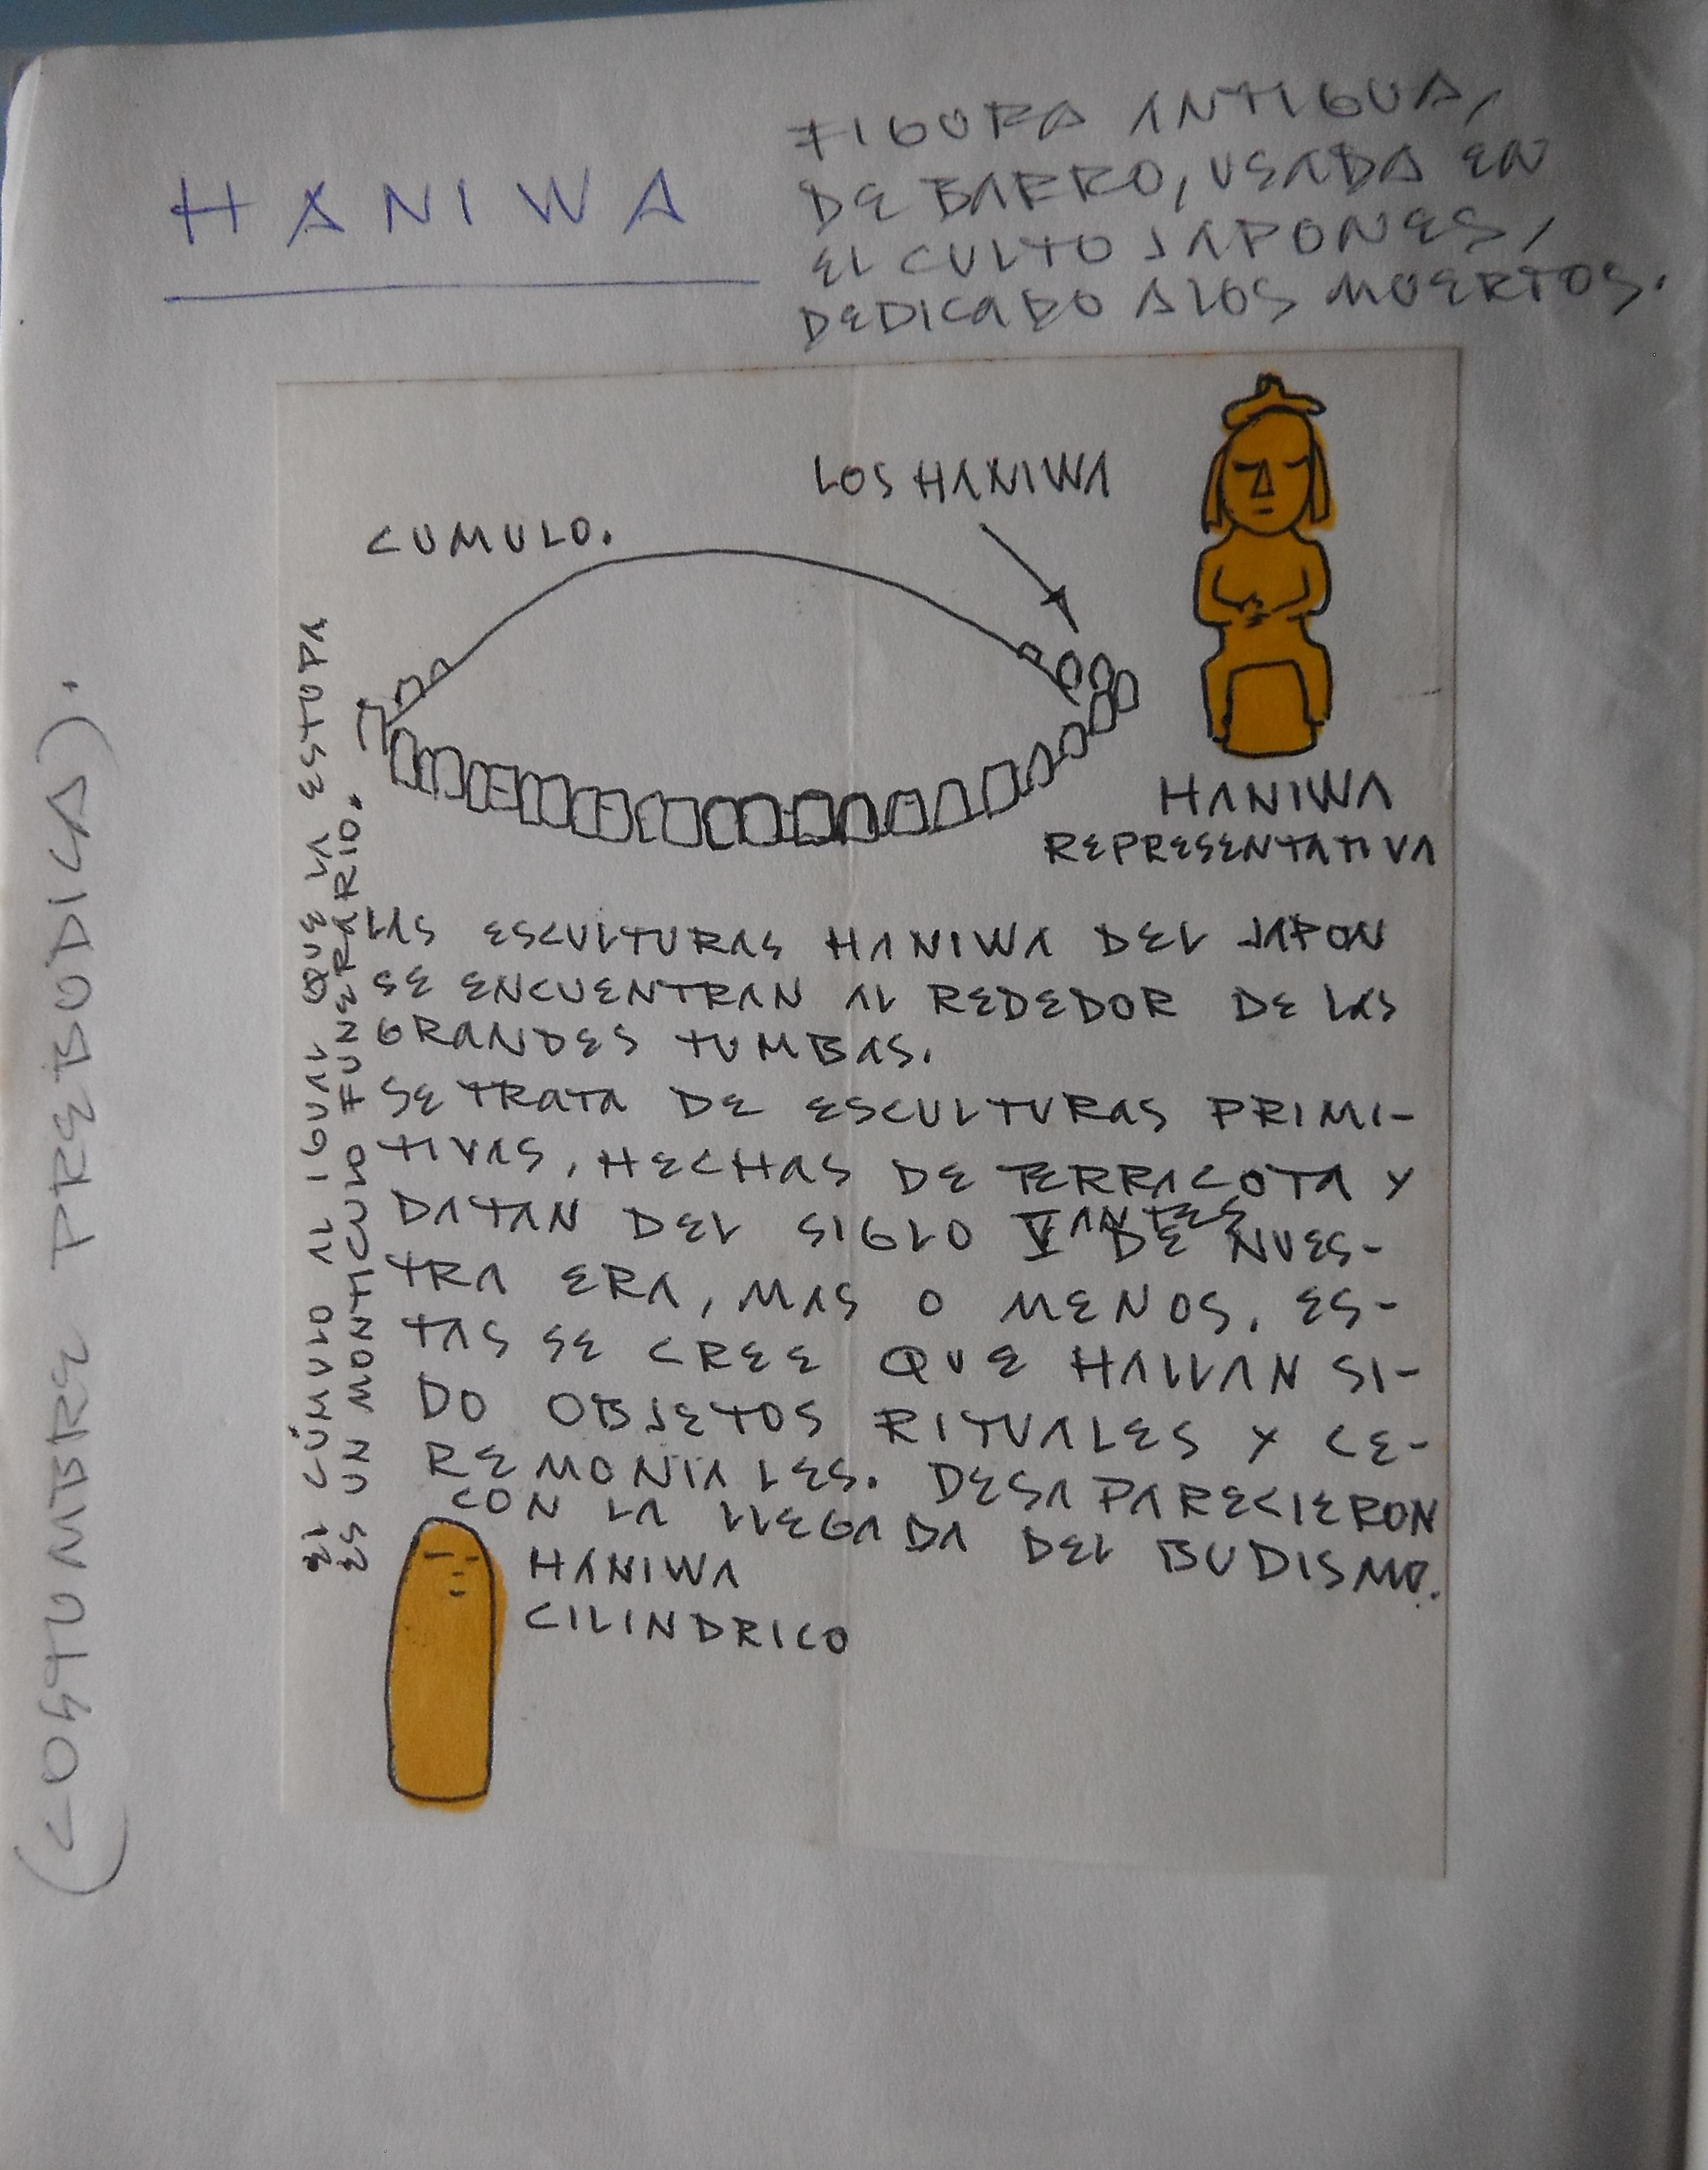 HANIWA
FIGURA ANTIGUA,
DE BARRO, USADA EN
EL CULTO JAPONES,
DEDICADO A LOS MUERTOS.
LOS HANIWA
CUMULO.
HANIWA
REPRESENTATIVA
LAS ESCULTURAS HANIWA DEL JAPON
SE ENCUENTRAN AL REDEDOR DE LAS
GRANDES TUMBAS.
SE TRATA DE ESCULTURAS PRIMI-
TIVAS, HECHAS DE TERRACOTA Y
DATAN DEL SIGLO V ANTES DE NUES-
TRA ERA, MAS O MENOS. ES-
TAS SE CREE QUE HALLAN SI-
DO OBJETOS RITUALES Y CE-
REMONIALES. DESAPARECIERON
CON LA LLEGADA DEL BUDISMO.
HANIWA
CILINDRICO
EL CÚMULO AL IGUAL QUE LA ESTUPA
ES UN MONTICULO FUNERARIO.
(COSTUMBRE PREBUDICA).